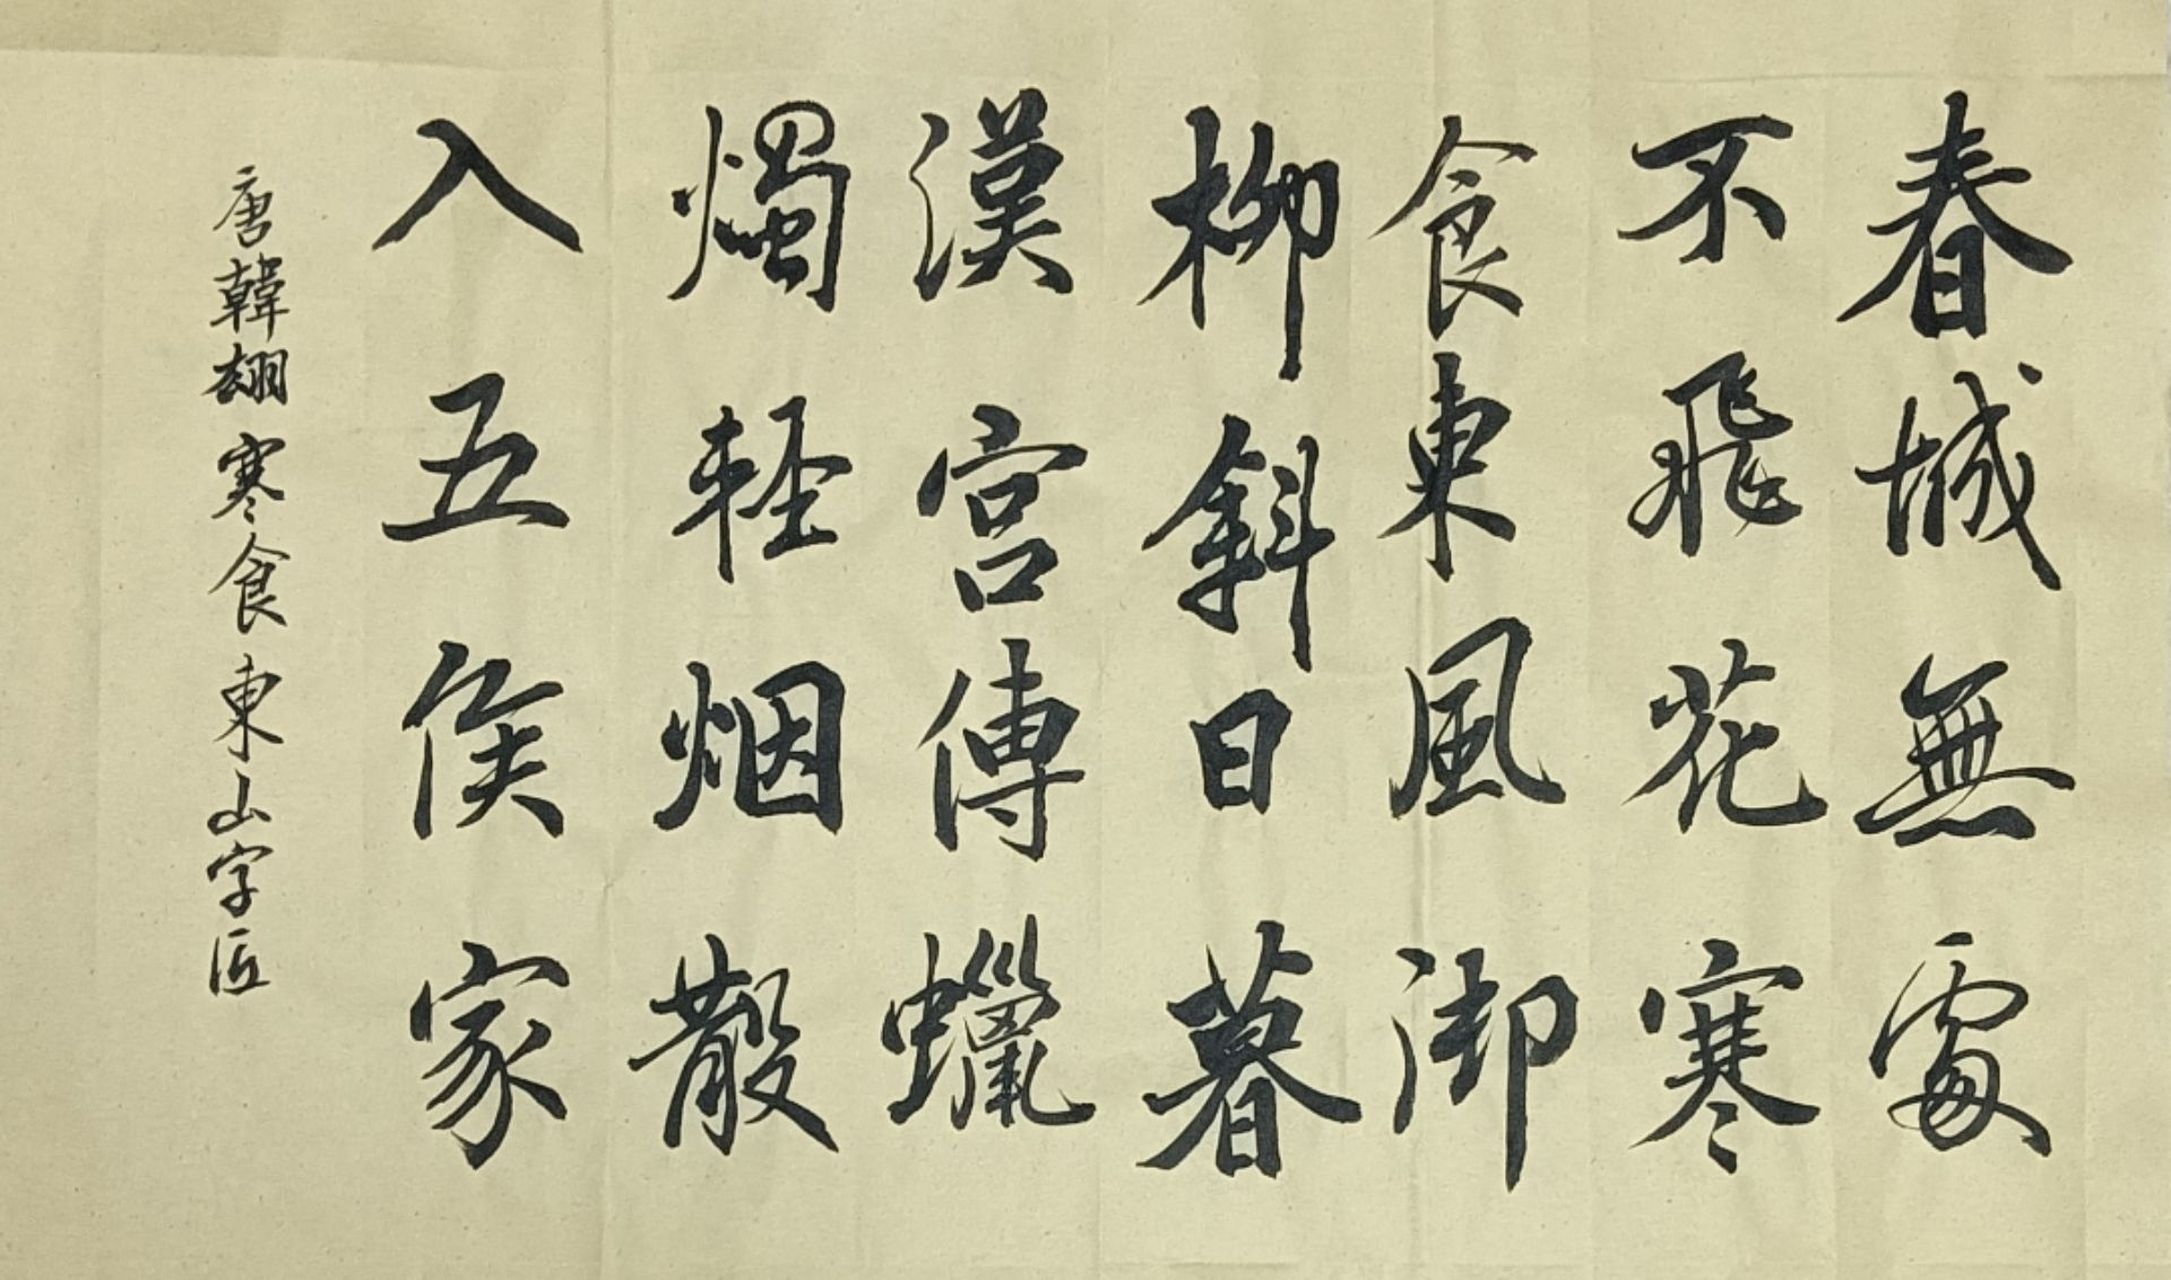 春城無處
不飛花寒
食東風御
柳斜日暮
漢宮傳蠟
燭軽烟散
入五侯家
唐韓翃寒食東山字匠